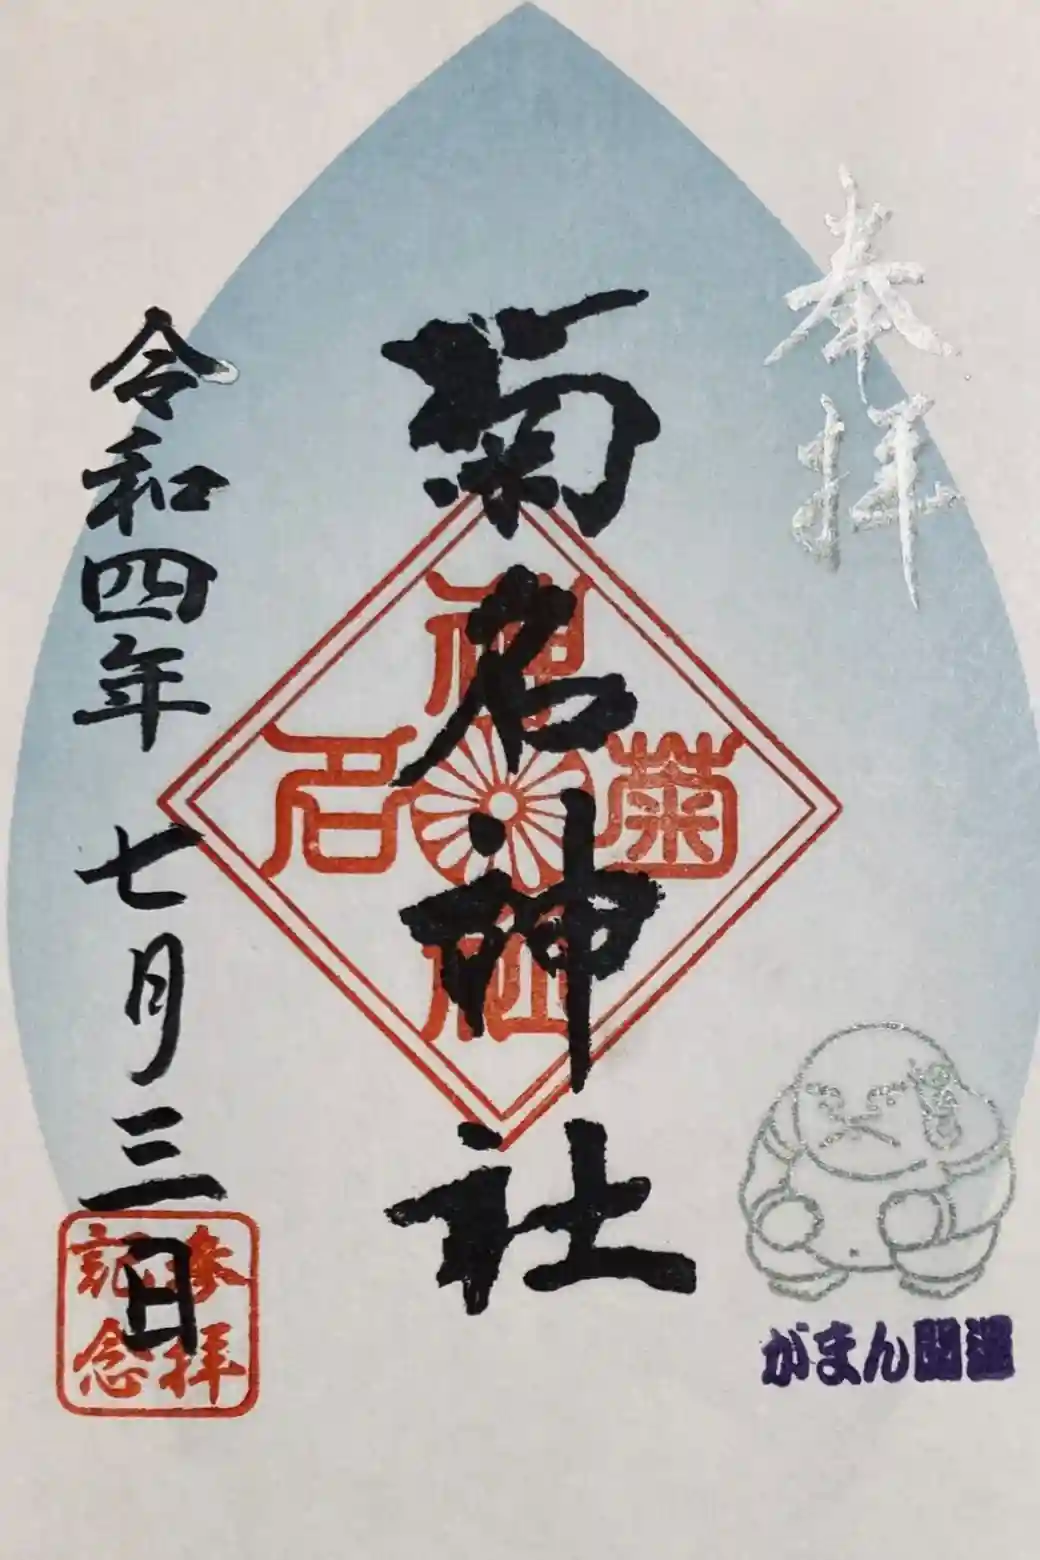 奉拝
菊名神社
菊名神社
令和四年 七月三日
参拝
記念
がまん開運